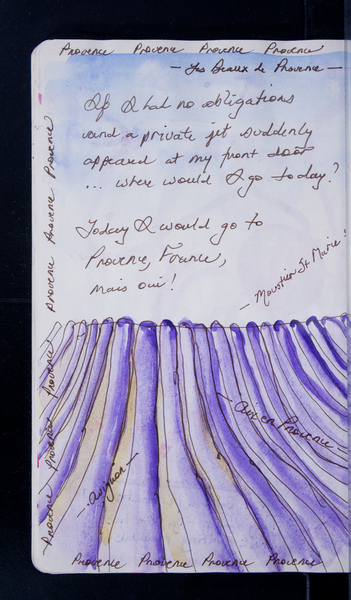 Provence Provence Provence Provence
— Les Beaux de Provence —
If I had no obligations
and a private jet suddenly
appeared at my front door
... where would I go today?
Today I would go to
Provence, France,
mais oui!
— Moustier St Marie!
— Aix en Provence —
— Avignon —
Provence Provence Provence Provence
Provence Provence Provence Provence Provence Provence